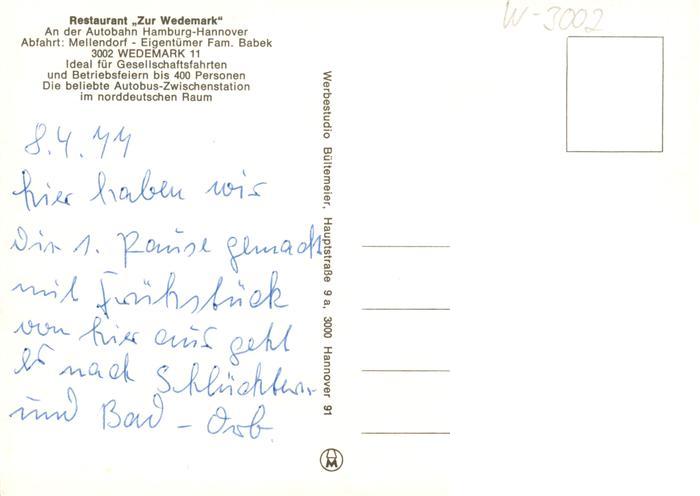 Restaurant „Zur Wedemark“
An der Autobahn Hamburg-Hannover
Abfahrt: Mellendorf - Eigentümer Fam. Babek
3002 WEDEMARK 11
Ideal für Gesellschaftsfahrten
und Betriebsfeiern bis 400 Personen
Die beliebte Autobus-Zwischenstation
im norddeutschen Raum
W-3002
8.4.77
hier haben wir
die 1. Pause gemacht
mit Frühstück
von hier aus geht
es nach Schlüchtern
und Bad - Orb.
Werbestudio Bültemeier, Hauptstraße 9 a, 3000 Hannover 91